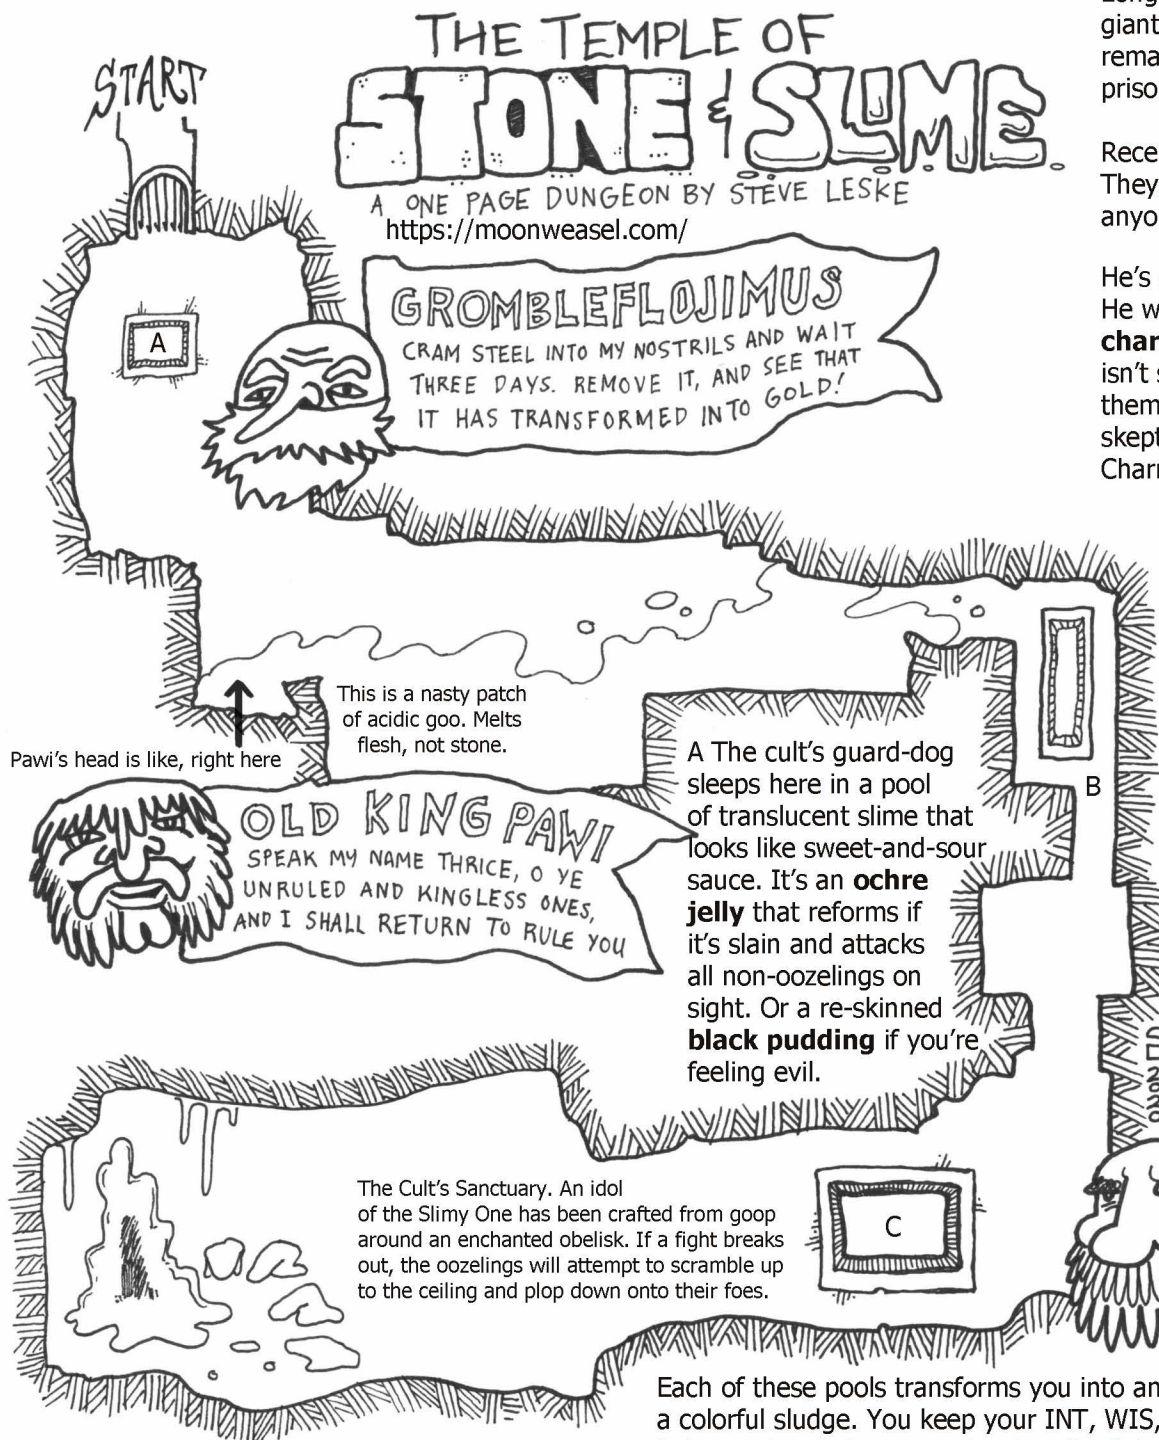 THE TEMPLE OF
STONE & SLIME
A ONE PAGE DUNGEON BY STEVE LESKE
https://moonweasel.com/
START
giant
rema
priso
Rece
They
anyo
He's
He w
char
isn't s
them
skept
Charr
GROMBLEFLOJIMUS
CRAM STEEL INTO MY NOSTRILS AND WAIT
THREE DAYS. REMOVE IT, AND SEE THAT
IT HAS TRANSFORMED INTO GOLD!
A
This is a nasty patch
of acidic goo. Melts
flesh, not stone.
Pawi's head is like, right here
OLD KING PAWI
SPEAK MY NAME THRICE, O YE
UNRULED AND KINGLESS ONES,
AND I SHALL RETURN TO RULE YOU
A The cult's guard-dog
sleeps here in a pool
of translucent slime that
looks like sweet-and-sour
sauce. It's an ochre
jelly that reforms if
it's slain and attacks
all non-oozelings on
sight. Or a re-skinned
black pudding if you're
feeling evil.
B
The Cult's Sanctuary. An idol
of the Slimy One has been crafted from goop
around an enchanted obelisk. If a fight breaks
out, the oozelings will attempt to scramble up
to the ceiling and plop down onto their foes.
C
Each of these pools transforms you into an
a colorful sludge. You keep your INT, WIS,